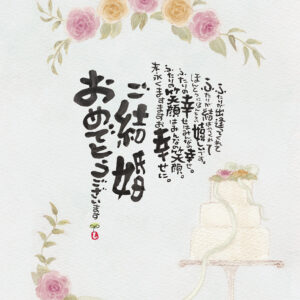 ふたりが出逢ってくれて
ふたりが結ばれてくれて
ほんとうにほんとうに嬉しいです。
ふたりの幸せはみんなの幸せ。
ふたりの笑顔はみんなの笑顔。
末永くますますお幸せに。
ご結婚
おめでとうございます